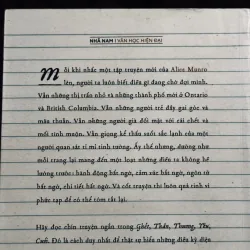 NHÃ NAM | VĂN HỌC HIỆN ĐẠI
Mỗi khi nhắc một tập truyện mới của Alice Munro
lên, người ta luôn biết điều gì đang chờ đợi mình.
Vẫn những thị trấn nhỏ và những thành phố mới ở Ontario
và British Columbia. Vẫn những người trẻ đầy gai góc và
mâu thuẫn. Vẫn những người già đối mặt với cái chết và
mối tình muộn. Vẫn giọng kể thấu suốt sắc lạnh của một
người quan sát tỉ mỉ tinh tường. Ấy thế nhưng, dường như
mỗi trang lại mang đến một loạt những điều ta không hề
lường trước: hành động bất ngờ, cảm xúc bất ngờ, ngôn từ
bất ngờ, chi tiết bất ngờ. Và cốt truyện thì luôn quá tinh vi
phức tạp để có thể tóm tắt lại.
Hãy đọc chín truyện ngắn trong Ghét, Thân, Thương, Yêu,
Cưới. Đó là cách duy nhất để thật sự hiểu những điều kỳ diệu